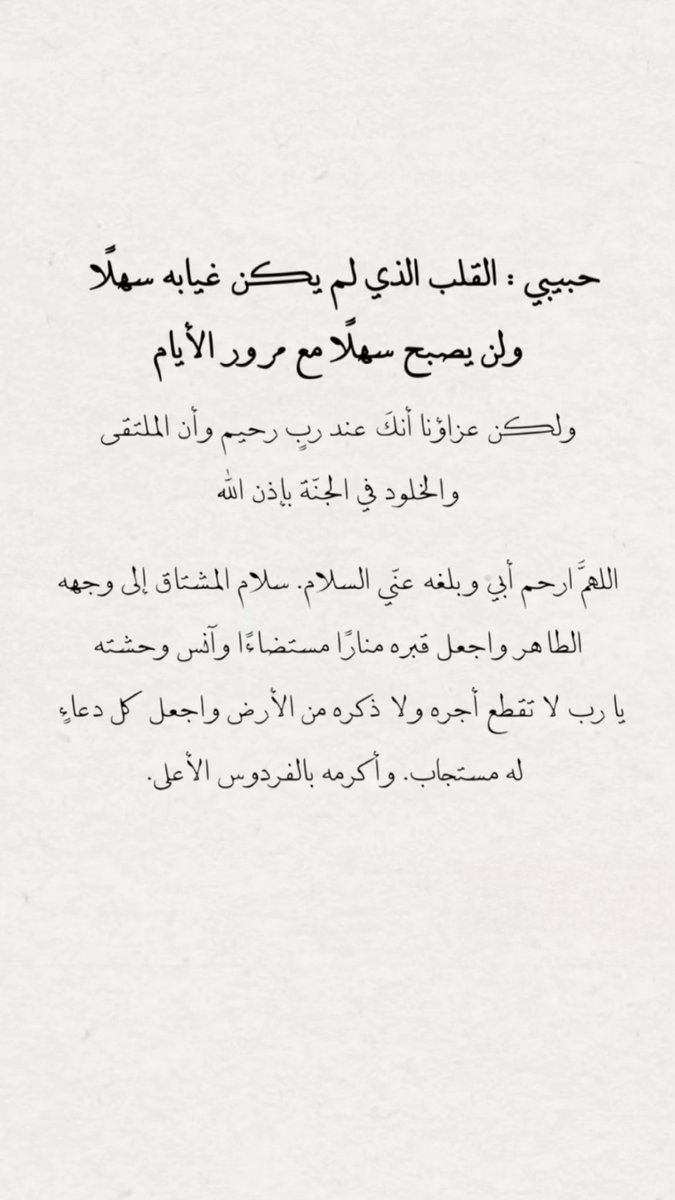 حبيبي : القلب الذي لم يكن غيابه سهلًا
ولن يصبح سهلًا مع مرور الأيام
ولكن عزاؤنا أنكَ عند ربٍ رحيم وأن الملتقى
والخلود في الجنّة بإذن الله
اللهمَّ ارحم أبي وبلغه عنّي السلام. سلام المشتاق إلى وجهه
الطاهر واجعل قبره منارًا مستضاءًا وآنس وحشته
يا رب لا تقطع أجره ولا ذكره من الأرض واجعل كل دعاءٍ
له مستجاب. وأكرمه بالفردوس الأعلى.